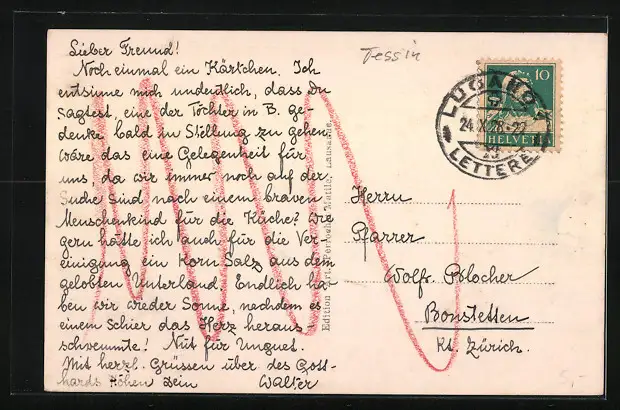 Lieber Freund!
Noch einmal ein Kärtchen. Ich
entsinne mich undeutlich, dass Du
sagtest, eine der Töchter in B. ge-
denke bald in Stellung zu gehen
wäre das eine Gelegenheit für
uns, da wir immer noch auf der
Suche sind nach einem braven
Menschenkind für die Küche? Wie
gern hätte ich auch für die Ver-
einigung ein Korn Salz aus dem
gelobten Unterland. Endlich ha
ben wir wieder Sonne, nachdem es
einem schier das Herz heraus
schwemmte! Nüt für Unguet.
Mit herzl. Grüssen über des Gott-
hards Höhen Dein Walter
Tessin
10
HELVETIA
LUGANO 1
24.X.28.-22
LETTERE
Edition Art. Perrochet Matile, Lausanne.
Herrn
Pfarrer
Wolfr. Blocher
Bonstetten
Kt. Zürich.